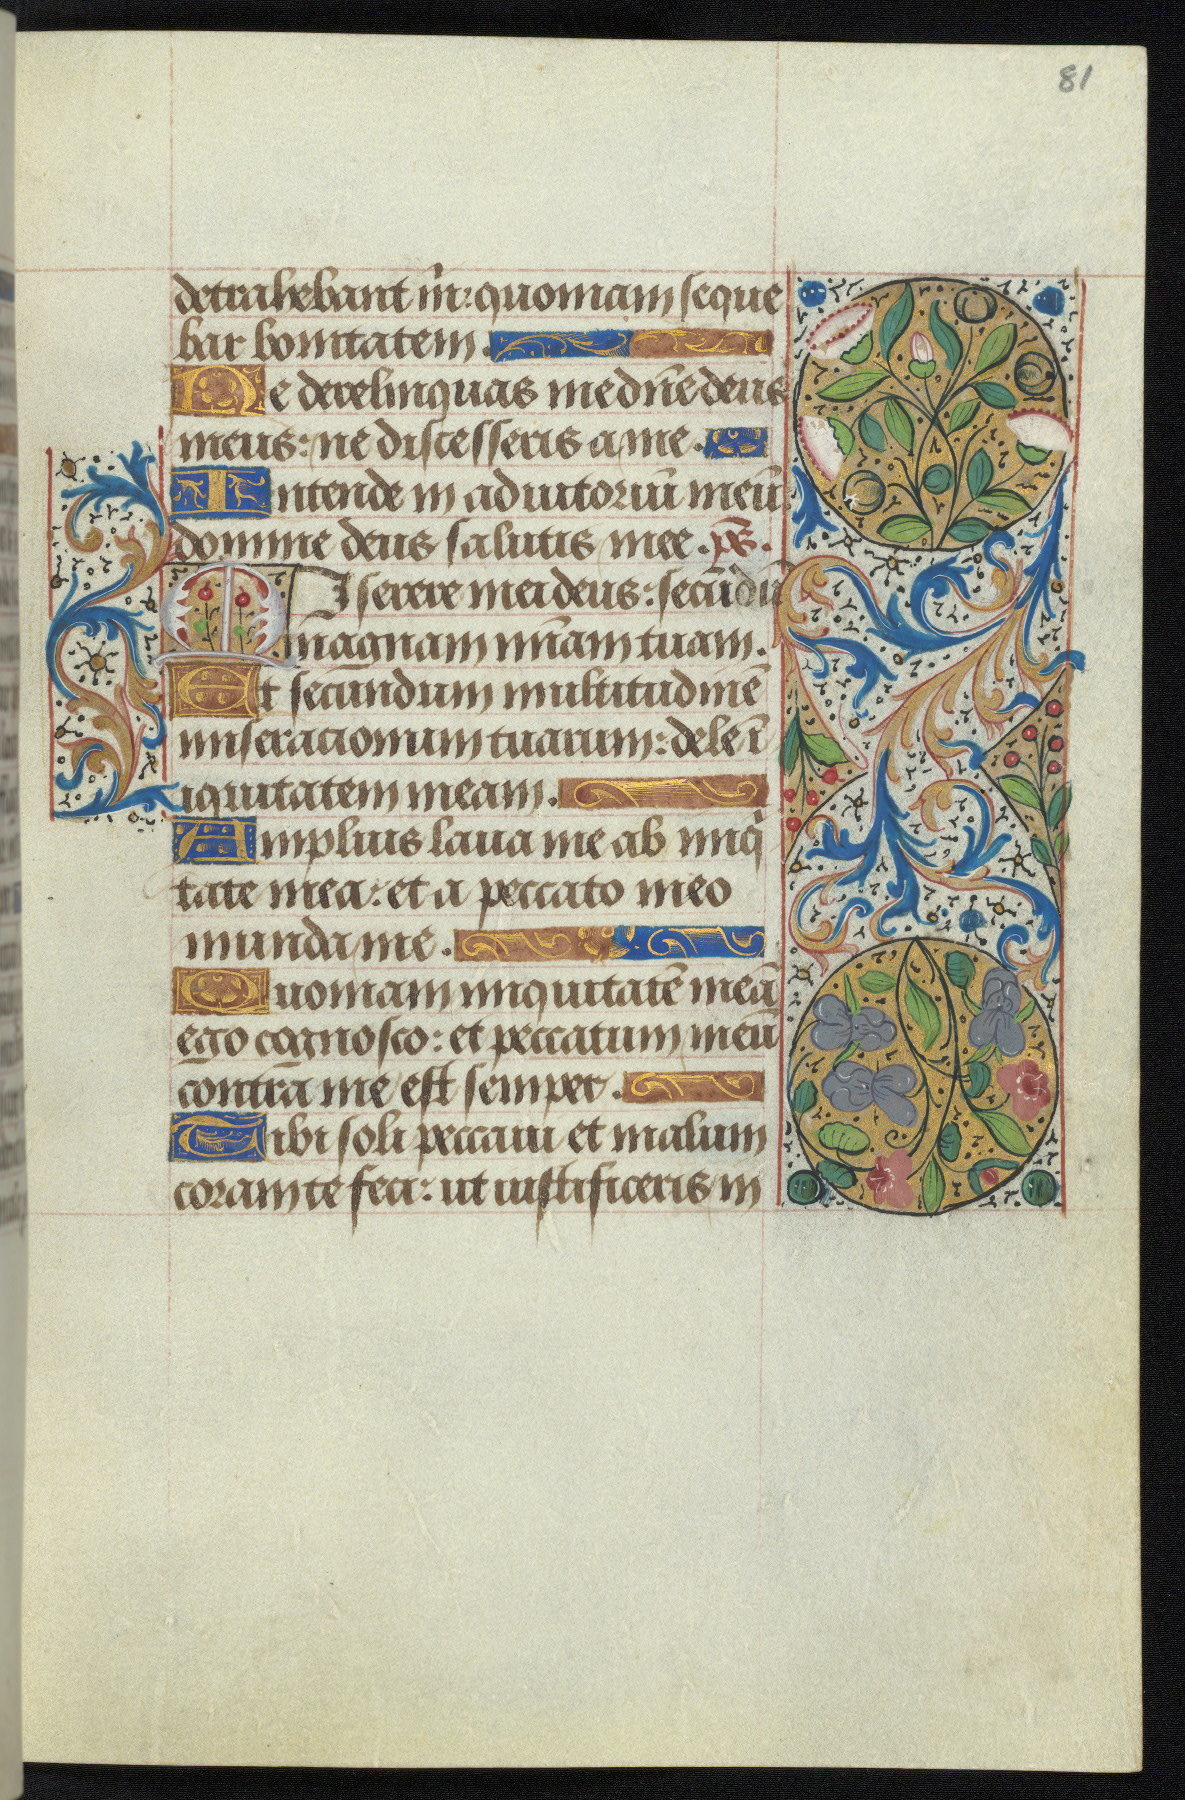 81
detrahebant m̄: quoniam seque
bar bonitatem.
Ne derelinquas me dn̄e deus
meus: ne discesseris a me.
Intende in adiutoriū meū
domine deus salutis mee. ps̄.
Miserere mei deus: secūdū
magnam mīam tuam.
Et secundum multitudinē
miseracionum tuarum: dele ī
iquitatem meam.
Amplius laua me ab iniq̄
tate mea: et a peccato meo
munda me.
Quoniam iniquitatē meā
ego cognosco: et peccatum meū
contra me est semper.
Tibi soli peccaui et malum
coram te feci: ut iustificeris in